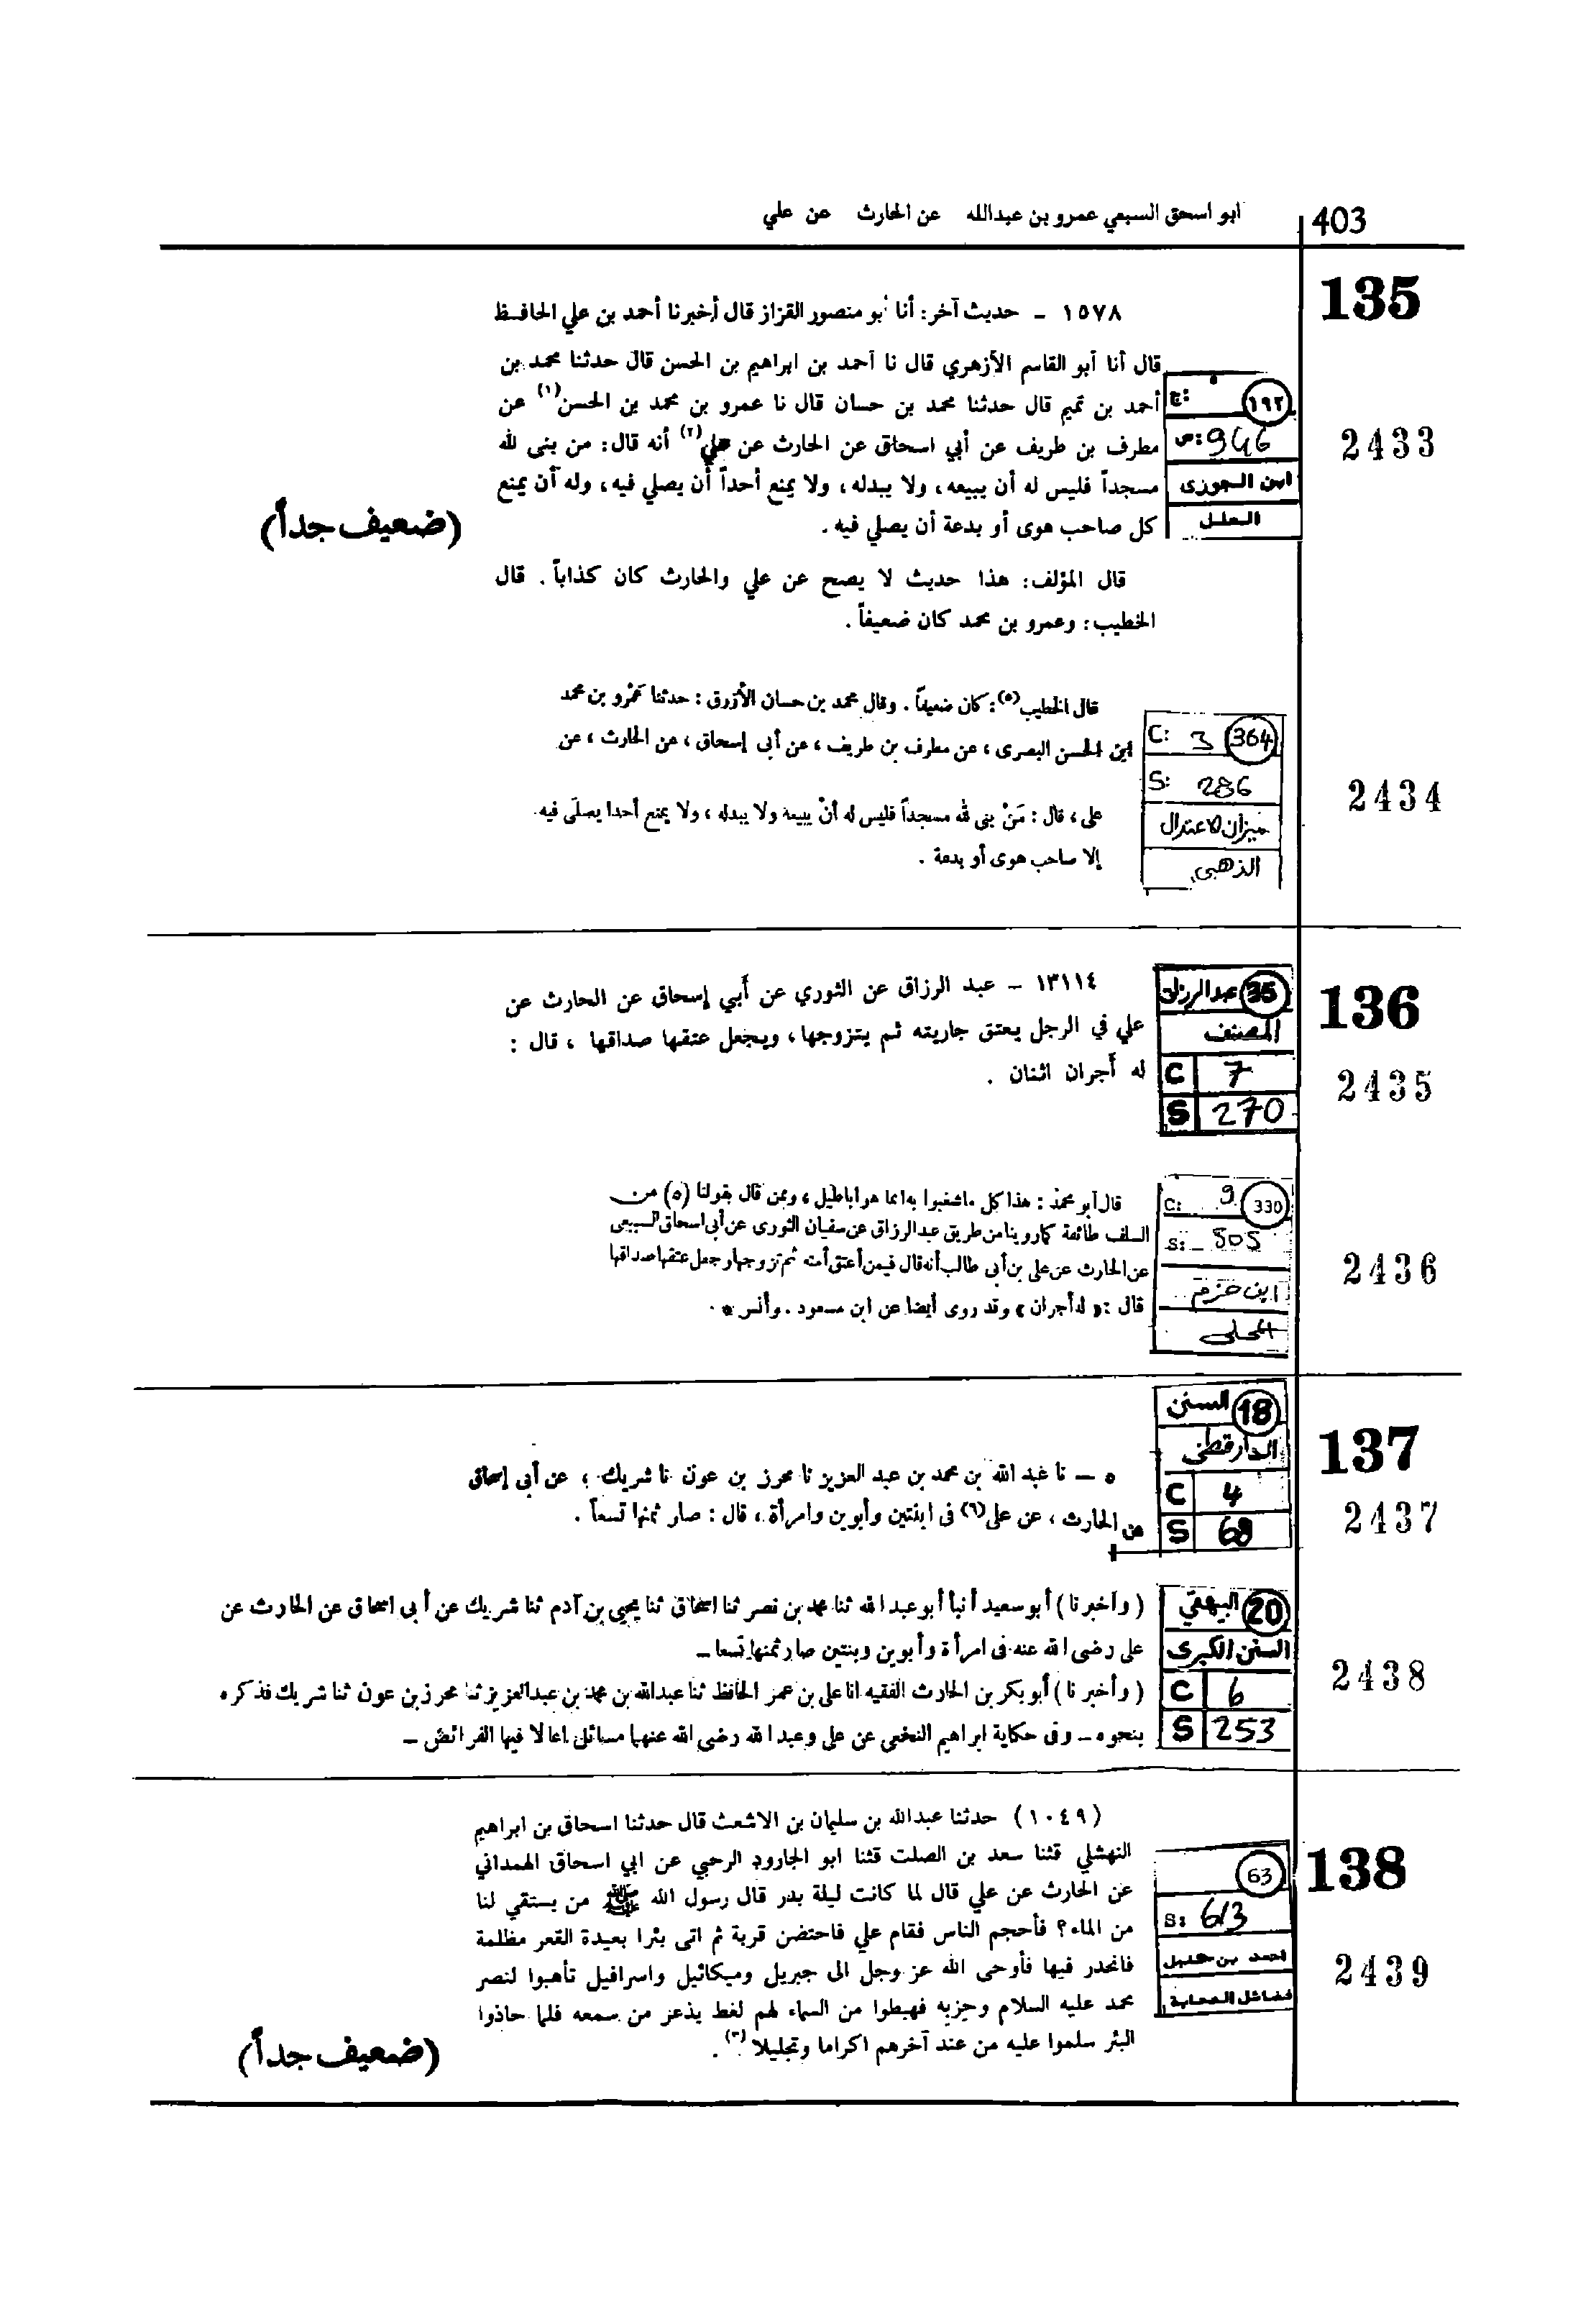 403
ابو اسحق السبعي عمرو بن عبدالله عن الحارث عن علي
135
١٥٧٨ - حديث آخر: أنا أبو منصور القزاز قال أخبرنا أحمد بن علي الحافظ
قال أنا أبو القاسم الأزهري قال نا أحمد بن ابراهيم بن الحسن قال حدثنا محمد بن
أحمد بن تميم قال حدثنا محمد بن حسان قال نا عمرو بن محمد بن الحسن(١) عن
مطرف بن طريف عن أبي اسحاق عن الحارث عن علي(٢) أنه قال: من بنى لله
مسجداً فليس له أن يبيعه، ولا يبدله، ولا يمنع أحداً أن يصلي فيه، وله أن يمنع
كل صاحب هوى أو بدعة أن يصلي فيه.
(ضعيف جداً)
قال المؤلف: هذا حديث لا يصح عن علي والحارث كان كذاباً. قال
الخطيب: وعمرو بن محمد كان ضعيفاً.
ج: ١٩٢
ص: 946
ابن الجوزى
العلل
2433
قال الخطيب(٥): كان ضعيفاً. وقال محمد بن حسان الأزرق: حدثنا عَمْرو بن محمد
ابن الحسن البصرى، عن مطرف بن طريف، عن أبى إسحاق، عن الحارث، عن
على، قال: مَنْ بنى لله مسجداً فليس له أنْ يبيعه ولا يبدله، ولا يمنع أحدا يصلّى فيه
إلا صاحب هوى أو بدعة.
C: 3 364
S: 286
ميزان الاعتدال
الذهبى
2434
136
١٣١١٤ - عبد الرزاق عن الثوري عن أبي إسحاق عن الحارث عن
علي في الرجل يعتق جاريته ثم يتزوجها، ويجعل عتقها صداقها، قال:
له أجران اثنان.
عبد الرزاق 35
المصنف
C 7
S 270
2435
قال أبو محمد: هذا كل ماشغبوا به انما هو اباطيل، وممن قال بقولنا (٥) من
السلف طائفة كما روينا من طريق عبد الرزاق عن سفيان الثورى عن أبى اسحاق السبيعى
عن الحارث عن على بن أبى طالب أنه قال فيمن أعتق أمته ثم تزوجها وجعل عتقها صداقها
قال: «له أجران» وقد روى أيضا عن ابن مسعود. وأنس *
C: 9 330
S: 505
ابن حزم
المحلى
2436
137
٥ - نا عبد الله بن محمد بن عبد العزيز نا محرز بن عون نا شريك، عن أبى إسحاق
عن الحارث، عن على(٦) فى ابنتين وأبوين وامرأة، قال: صار ثمنها تسعاً.
السنن 18
الدارقطنى
C 4
S 68
2437
(وأخبرنا) أبو سعيد أنبأ أبو عبد الله ثنا محمد بن نصر ثنا اسحاق ثنا يحيى بن آدم ثنا شريك عن أبى اسحاق عن الحارث عن
على رضى الله عنه فى امرأة وأبوين وبنتين صار ثمنها تسعا -
(وأخبرنا) أبو بكر بن الحارث الفقيه انا على بن عمر الحافظ ثنا عبد الله بن محمد بن عبد العزيز ثنا محرز بن عون ثنا شريك فذكره
بنحوه - وفى حكاية ابراهيم النخعى عن على وعبد الله رضى الله عنهما مسائل اعالا فيها الفرائض -
البيهقي 20
السنن الكبرى
C 6
S 253
2438
138
(١٠٤٩) حدثنا عبدالله بن سليمان بن الاشعث قال حدثنا اسحاق بن ابراهيم
النهشلي قثنا سعد بن الصلت قثنا ابو الجارود الرحبي عن ابي اسحاق الهمداني
عن الحارث عن علي قال لما كانت ليلة بدر قال رسول الله ﷺ من يستقي لنا
من الماء؟ فأحجم الناس فقام علي فاحتضن قربة ثم اتى بئرا بعيدة القعر مظلمة
فانحدر فيها فأوحى الله عز وجل الى جبريل وميكائيل واسرافيل تأهبوا لنصر
محمد عليه السلام وحزبه فهبطوا من السماء لهم لغط يذعر من سمعه فلما حاذوا
البئر سلموا عليه من عند آخرهم اكراما وتجليلا(٣).
(ضعيف جداً)
63
S: 613
احمد بن حنبل
فضائل الصحابة
2439